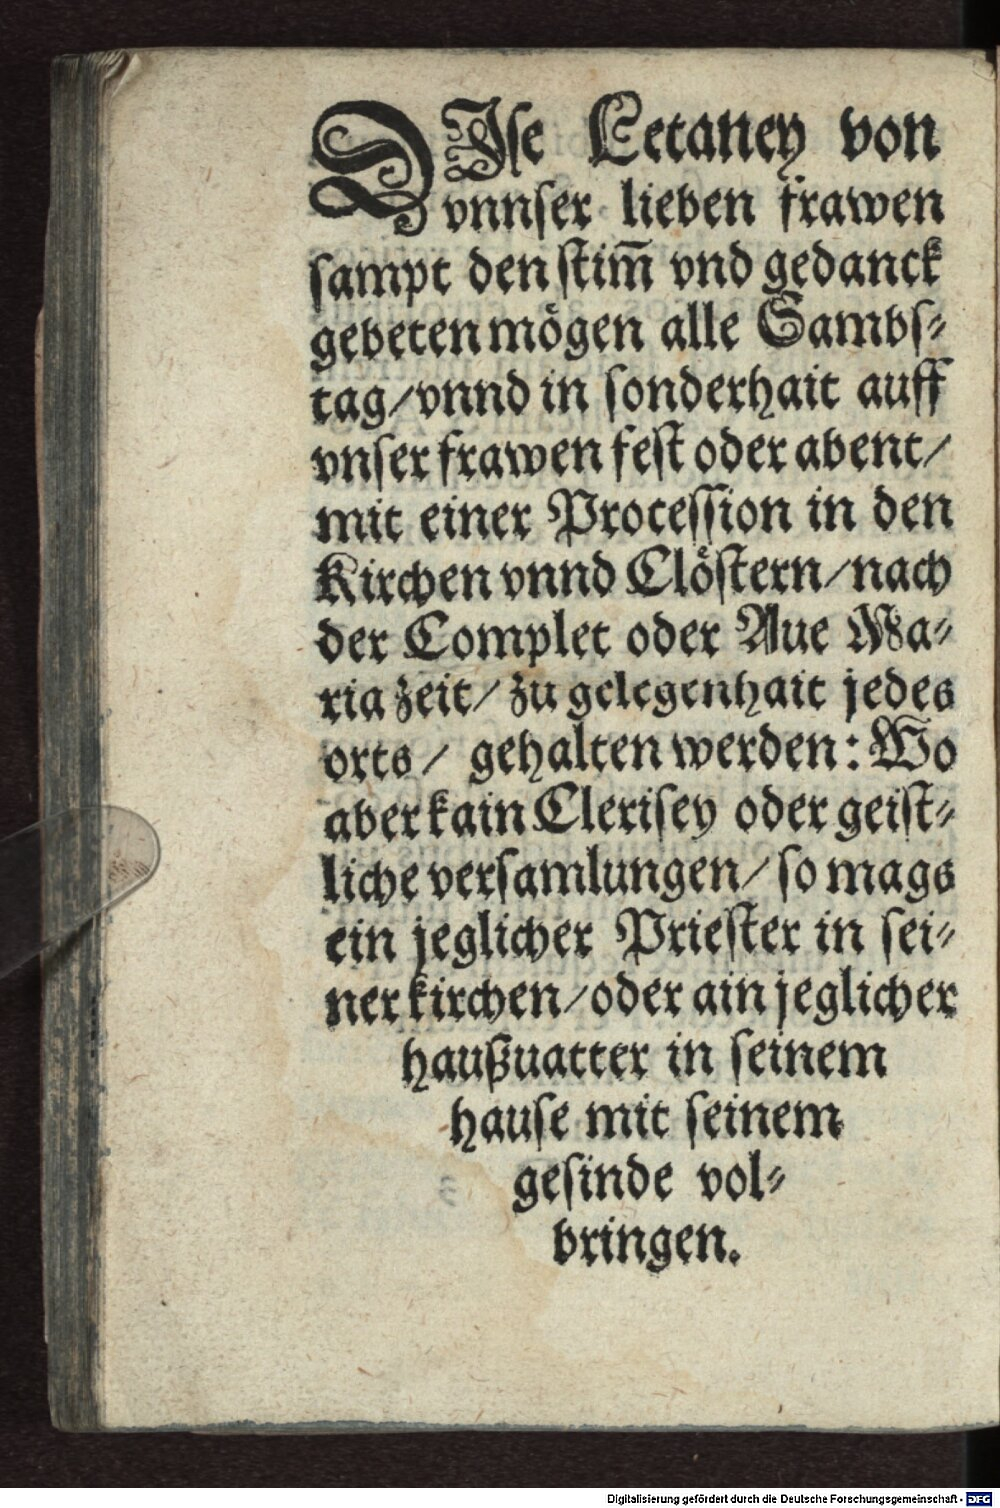 DIse Letaney von
vnnser lieben frawen
sampt den stim̄ vnd gedanck
gebeten mögen alle Sambs⸗
tag/vnnd in sonderhait auff
vnser frawen fest oder abent/
mit einer Procession in den
Kirchen vnnd Clöstern/nach
der Complet oder Aue Ma⸗
ria zeit/ zu gelegenhait jedes
orts/ gehalten werden: Wo
aber kain Clerisey oder geist⸗
liche versamlungen/so mags
ein jeglicher Priester in sei⸗
ner kirchen/oder ain jeglicher
haußuatter in seinem
hause mit seinem
gesinde vol⸗
bringen.
Digitalisierung gefördert durch die Deutsche Forschungsgemeinschaft - DFG